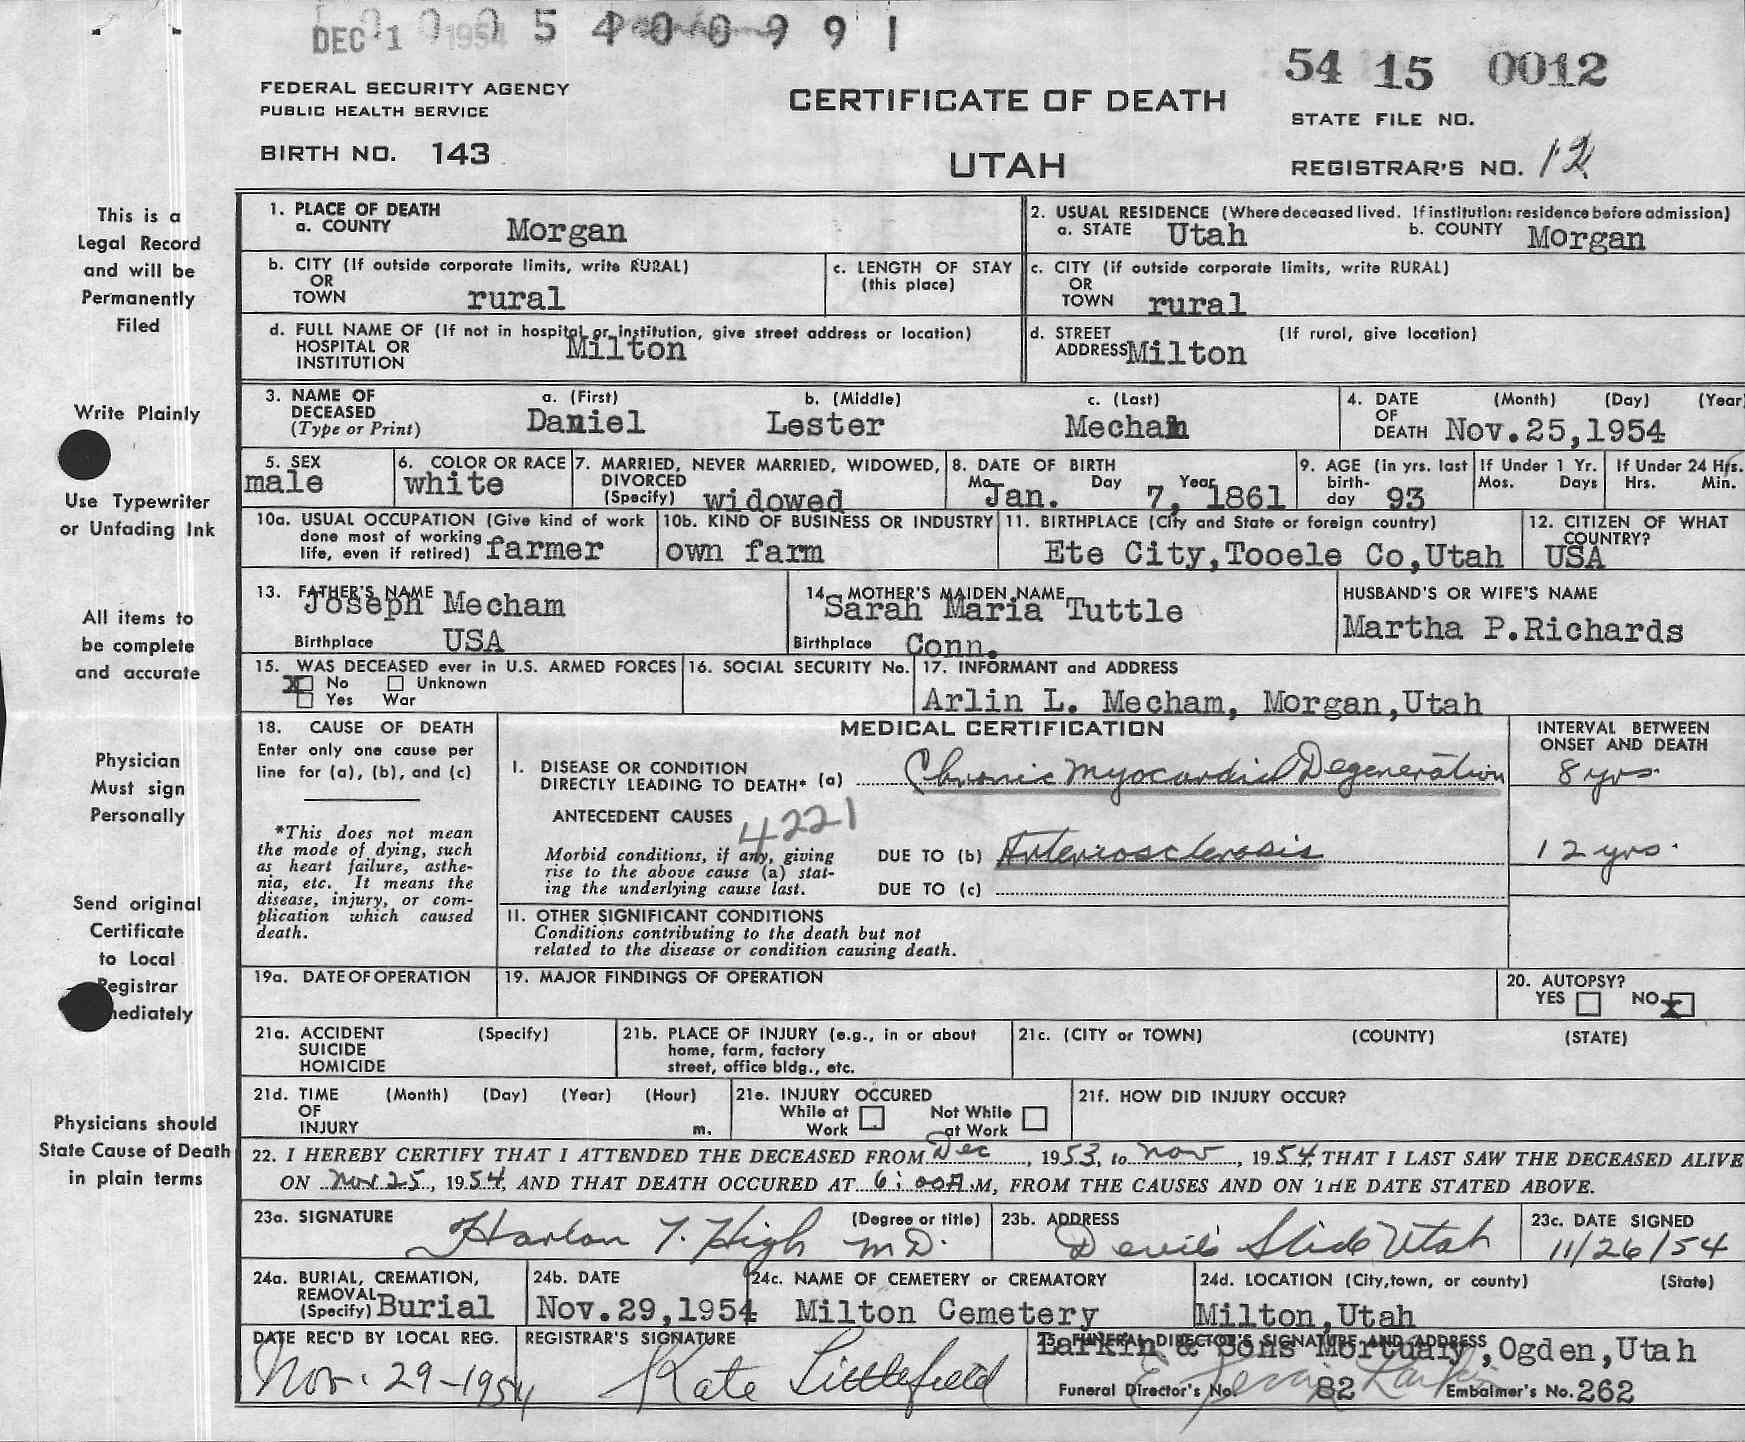 DEC 1 1954
0 0 5 4 0 0 9 9 1
54 15 0012
FEDERAL SECURITY AGENCY
PUBLIC HEALTH SERVICE
CERTIFICATE OF DEATH
STATE FILE NO.
BIRTH NO. 143
UTAH
REGISTRAR'S NO. 12
This is a
Legal Record
and will be
Permanently
Filed
Write Plainly
Use Typewriter
or Unfading Ink
All items to
be complete
and accurate
Physician
Must sign
Personally
Send original
Certificate
to Local
Registrar
mediately
Physicians should
State Cause of Death
in plain terms
1. PLACE OF DEATH
a. COUNTY Morgan
2. USUAL RESIDENCE (Where deceased lived. If institution: residence before admission)
a. STATE Utah b. COUNTY Morgan
b. CITY (If outside corporate limits, write RURAL)
OR
TOWN rural
c. LENGTH OF STAY
(this place)
c. CITY (if outside corporate limits, write RURAL)
OR
TOWN rural
d. FULL NAME OF (If not in hospital or institution, give street address or location)
HOSPITAL OR
INSTITUTION Milton
d. STREET (If rural, give location)
ADDRESS Milton
3. NAME OF a. (First) b. (Middle) c. (Last)
DECEASED
(Type or Print) Daniel Lester Mecham
4. DATE (Month) (Day) (Year)
OF
DEATH Nov.25,1954
5. SEX
male
6. COLOR OR RACE
white
7. MARRIED, NEVER MARRIED, WIDOWED,
DIVORCED
(Specify) widowed
8. DATE OF BIRTH
Mo. Day Year
Jan. 7, 1861
9. AGE (in yrs. last
birth-
day 93
If Under 1 Yr.
Mos. Days
If Under 24 Hrs.
Hrs. Min.
10a. USUAL OCCUPATION (Give kind of work
done most of working
life, even if retired) farmer
10b. KIND OF BUSINESS OR INDUSTRY
own farm
11. BIRTHPLACE (City and State or foreign country)
Ete City,Tooele Co,Utah
12. CITIZEN OF WHAT
COUNTRY?
USA
13. FATHER'S NAME
Joseph Mecham
Birthplace USA
14. MOTHER'S MAIDEN NAME
Sarah Maria Tuttle
Birthplace Conn.
HUSBAND'S OR WIFE'S NAME
Martha P.Richards
15. WAS DECEASED ever in U.S. ARMED FORCES
X No Unknown
Yes War
16. SOCIAL SECURITY No.
17. INFORMANT and ADDRESS
Arlin L. Mecham, Morgan,Utah
18. CAUSE OF DEATH
Enter only one cause per
line for (a), (b), and (c)
*This does not mean
the mode of dying, such
as heart failure, asthe-
nia, etc. It means the
disease, injury, or com-
plication which caused
death.
MEDICAL CERTIFICATION
INTERVAL BETWEEN
ONSET AND DEATH
I. DISEASE OR CONDITION
DIRECTLY LEADING TO DEATH* (a) Chronic Myocardial Degeneration 8 yrs.
ANTECEDENT CAUSES
4221
Morbid conditions, if any, giving
rise to the above cause (a) stat-
ing the underlying cause last.
DUE TO (b) Arteriosclerosis 12 yrs.
DUE TO (c)
II. OTHER SIGNIFICANT CONDITIONS
Conditions contributing to the death but not
related to the disease or condition causing death.
19a. DATE OF OPERATION
19. MAJOR FINDINGS OF OPERATION
20. AUTOPSY?
YES NO X
21a. ACCIDENT (Specify)
SUICIDE
HOMICIDE
21b. PLACE OF INJURY (e.g., in or about
home, farm, factory
street, office bldg., etc.
21c. (CITY or TOWN) (COUNTY) (STATE)
21d. TIME (Month) (Day) (Year) (Hour)
OF
INJURY m.
21e. INJURY OCCURED
While at Not While
Work at Work
21f. HOW DID INJURY OCCUR?
22. I HEREBY CERTIFY THAT I ATTENDED THE DECEASED FROM Dec, 1953, to Nov, 1954, THAT I LAST SAW THE DECEASED ALIVE
ON Nov 25, 1954, AND THAT DEATH OCCURED AT 6:00A.M, FROM THE CAUSES AND ON THE DATE STATED ABOVE.
23a. SIGNATURE (Degree or title)
Harlan Y. High M.D.
23b. ADDRESS
Devil's Slide Utah
23c. DATE SIGNED
11/26/54
24a. BURIAL, CREMATION,
REMOVAL
(Specify) Burial
24b. DATE
Nov.29,1954
24c. NAME OF CEMETERY or CREMATORY
Milton Cemetery
24d. LOCATION (City,town, or county) (State)
Milton,Utah
DATE REC'D BY LOCAL REG.
Nov. 29-1954
REGISTRAR'S SIGNATURE
Kate Littlefield
25. FUNERAL DIRECTOR'S SIGNATURE AND ADDRESS
Larkin & Sons Mortuary,Ogden,Utah
Funeral Director's No. 82 Embalmer's No. 262